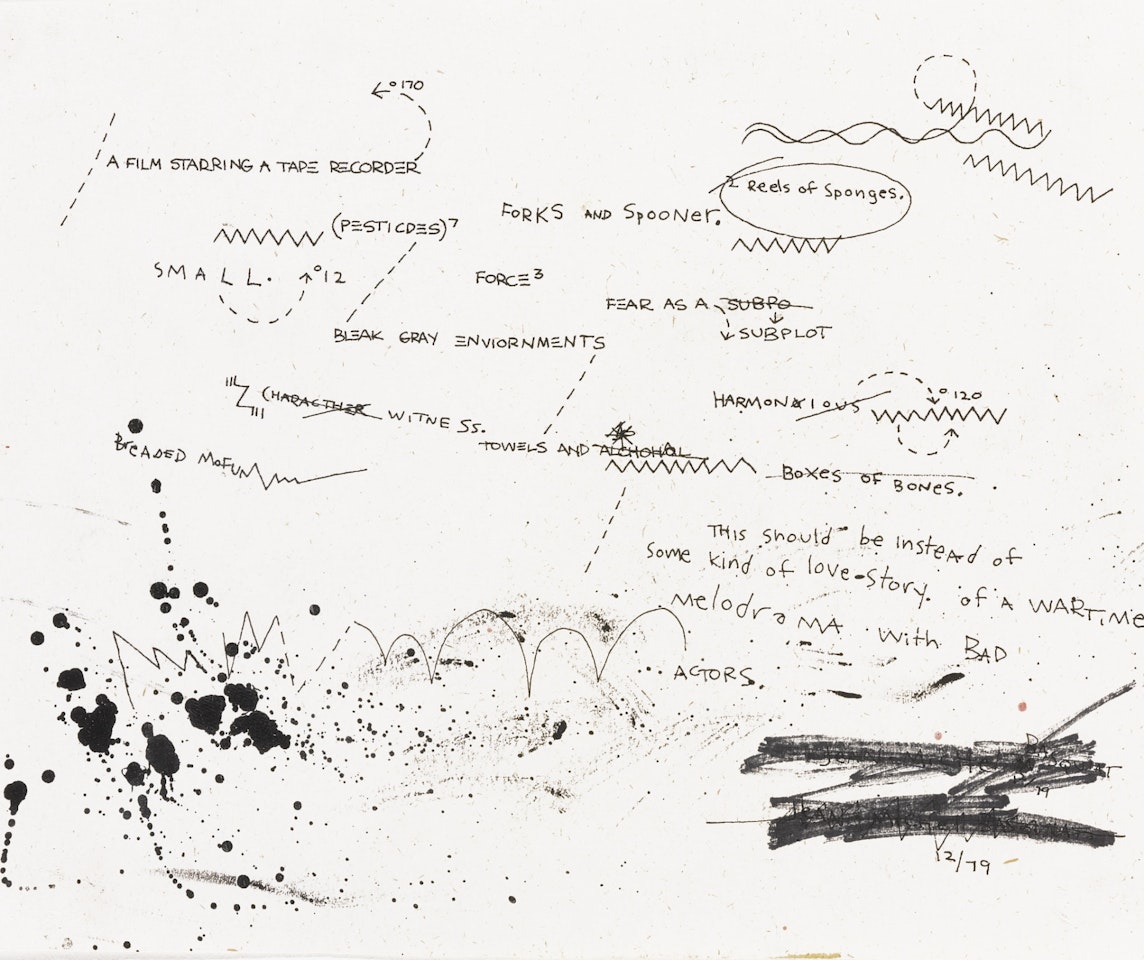 °170
A FILM STARRING A TAPE RECORDER
2 Reels of Sponges.
FORKS AND SpooNeR.
(PESTICDES)7
SMALL. °12
FORCE3
FEAR AS A SUBPO
SUBPLOT
BLEAK GRAY ENVIORNMENTS
HARMONIOUS °120
CHARACTHER WITNESS.
BreADED MOFUN
TOWELS AND ALCHOHOL
BOXES OF BONES.
THis should be insteAd of
Some kind of love-Story. of A WARTiMe
Melodra MA With BAD
ACTORS.
79
12/79